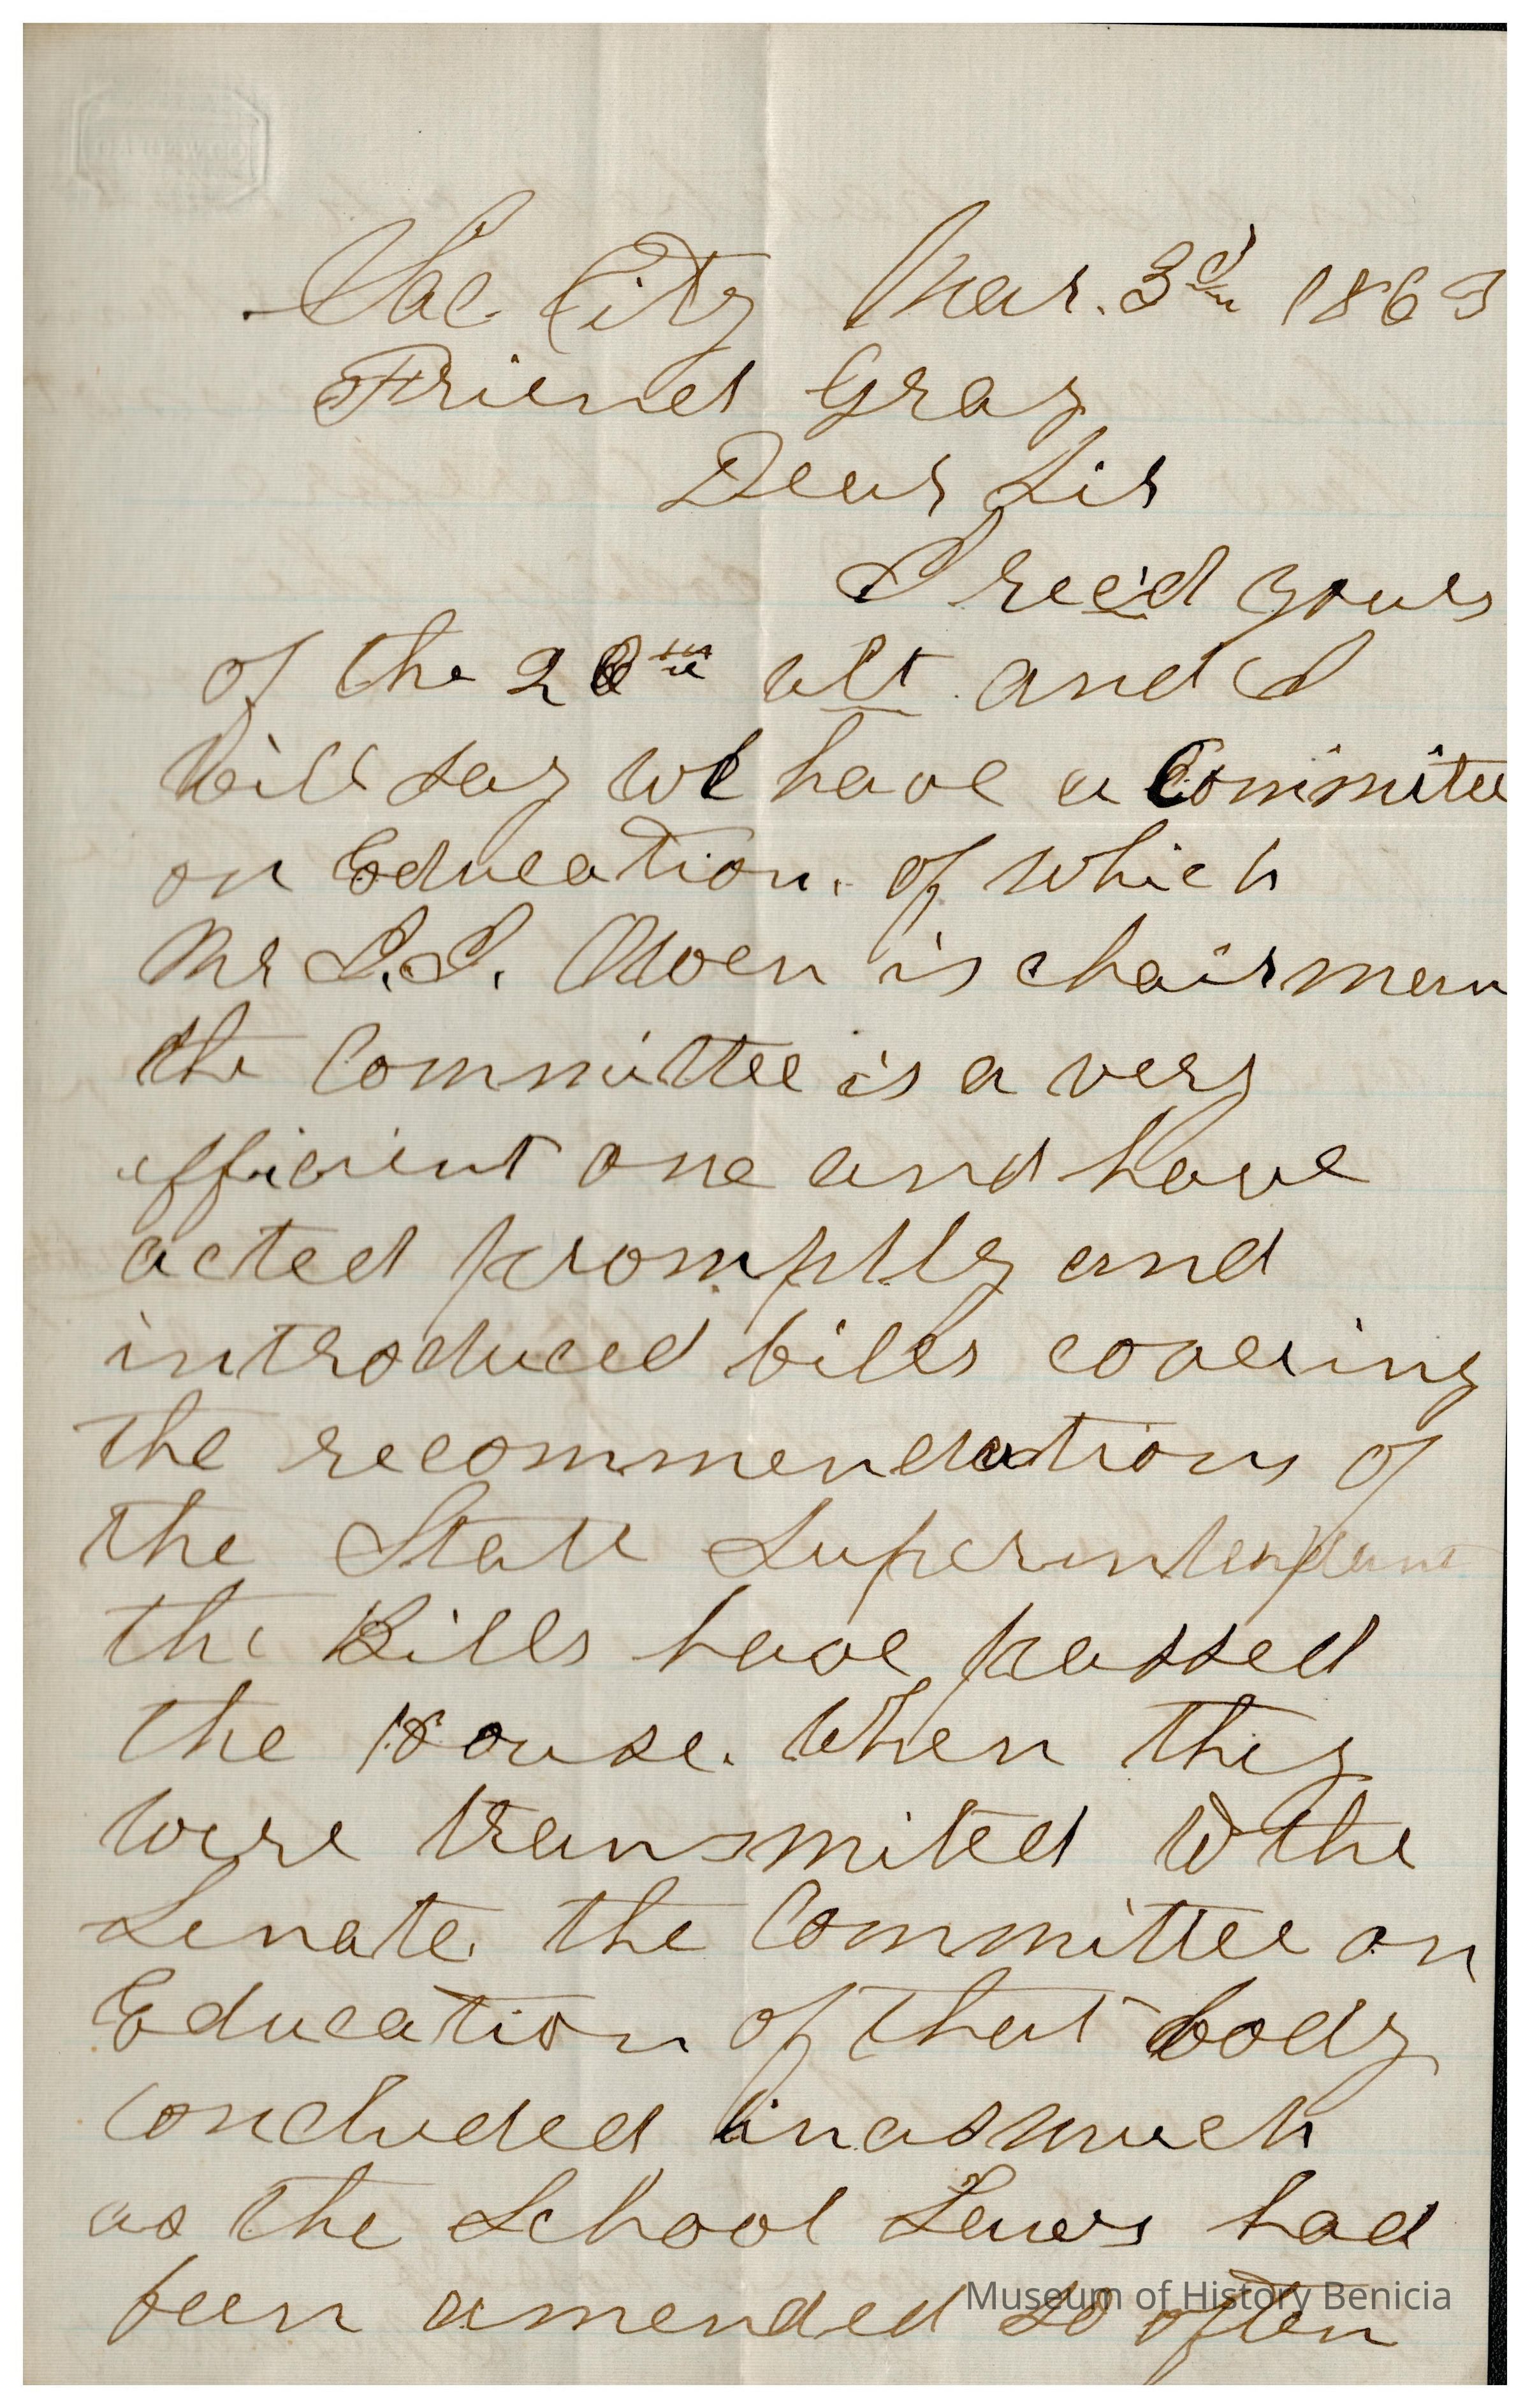 Sac. City Mar. 3d 1863
Friend Gray
Dear Sir
I rec'd yours
of the 28th ult and I
will say we have a Committee
on Education. of which
Mr J. J. Owen is chairman
the Committee is a very
efficient one and have
acted promptly and
introduced bills covering
the recommendations of
the State Superintendent
the Bills have passed
the House. When they
were transmited to the
Senate. the Committee on
Education of that body
concluded inasmuch
as the School Laws had
been amended so often
Museum of History Benicia